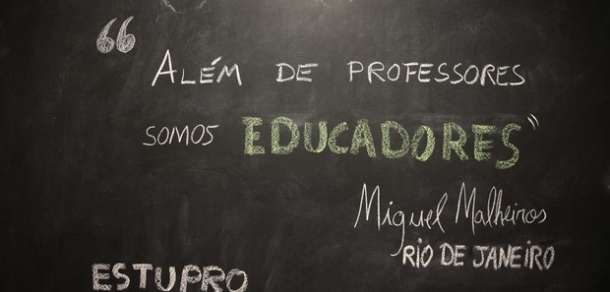 “ ALÉM DE PROFESSORES
SOMOS EDUCADORES”
Miguel Malheiros
RIO DE JANEIRO
ESTUPRO